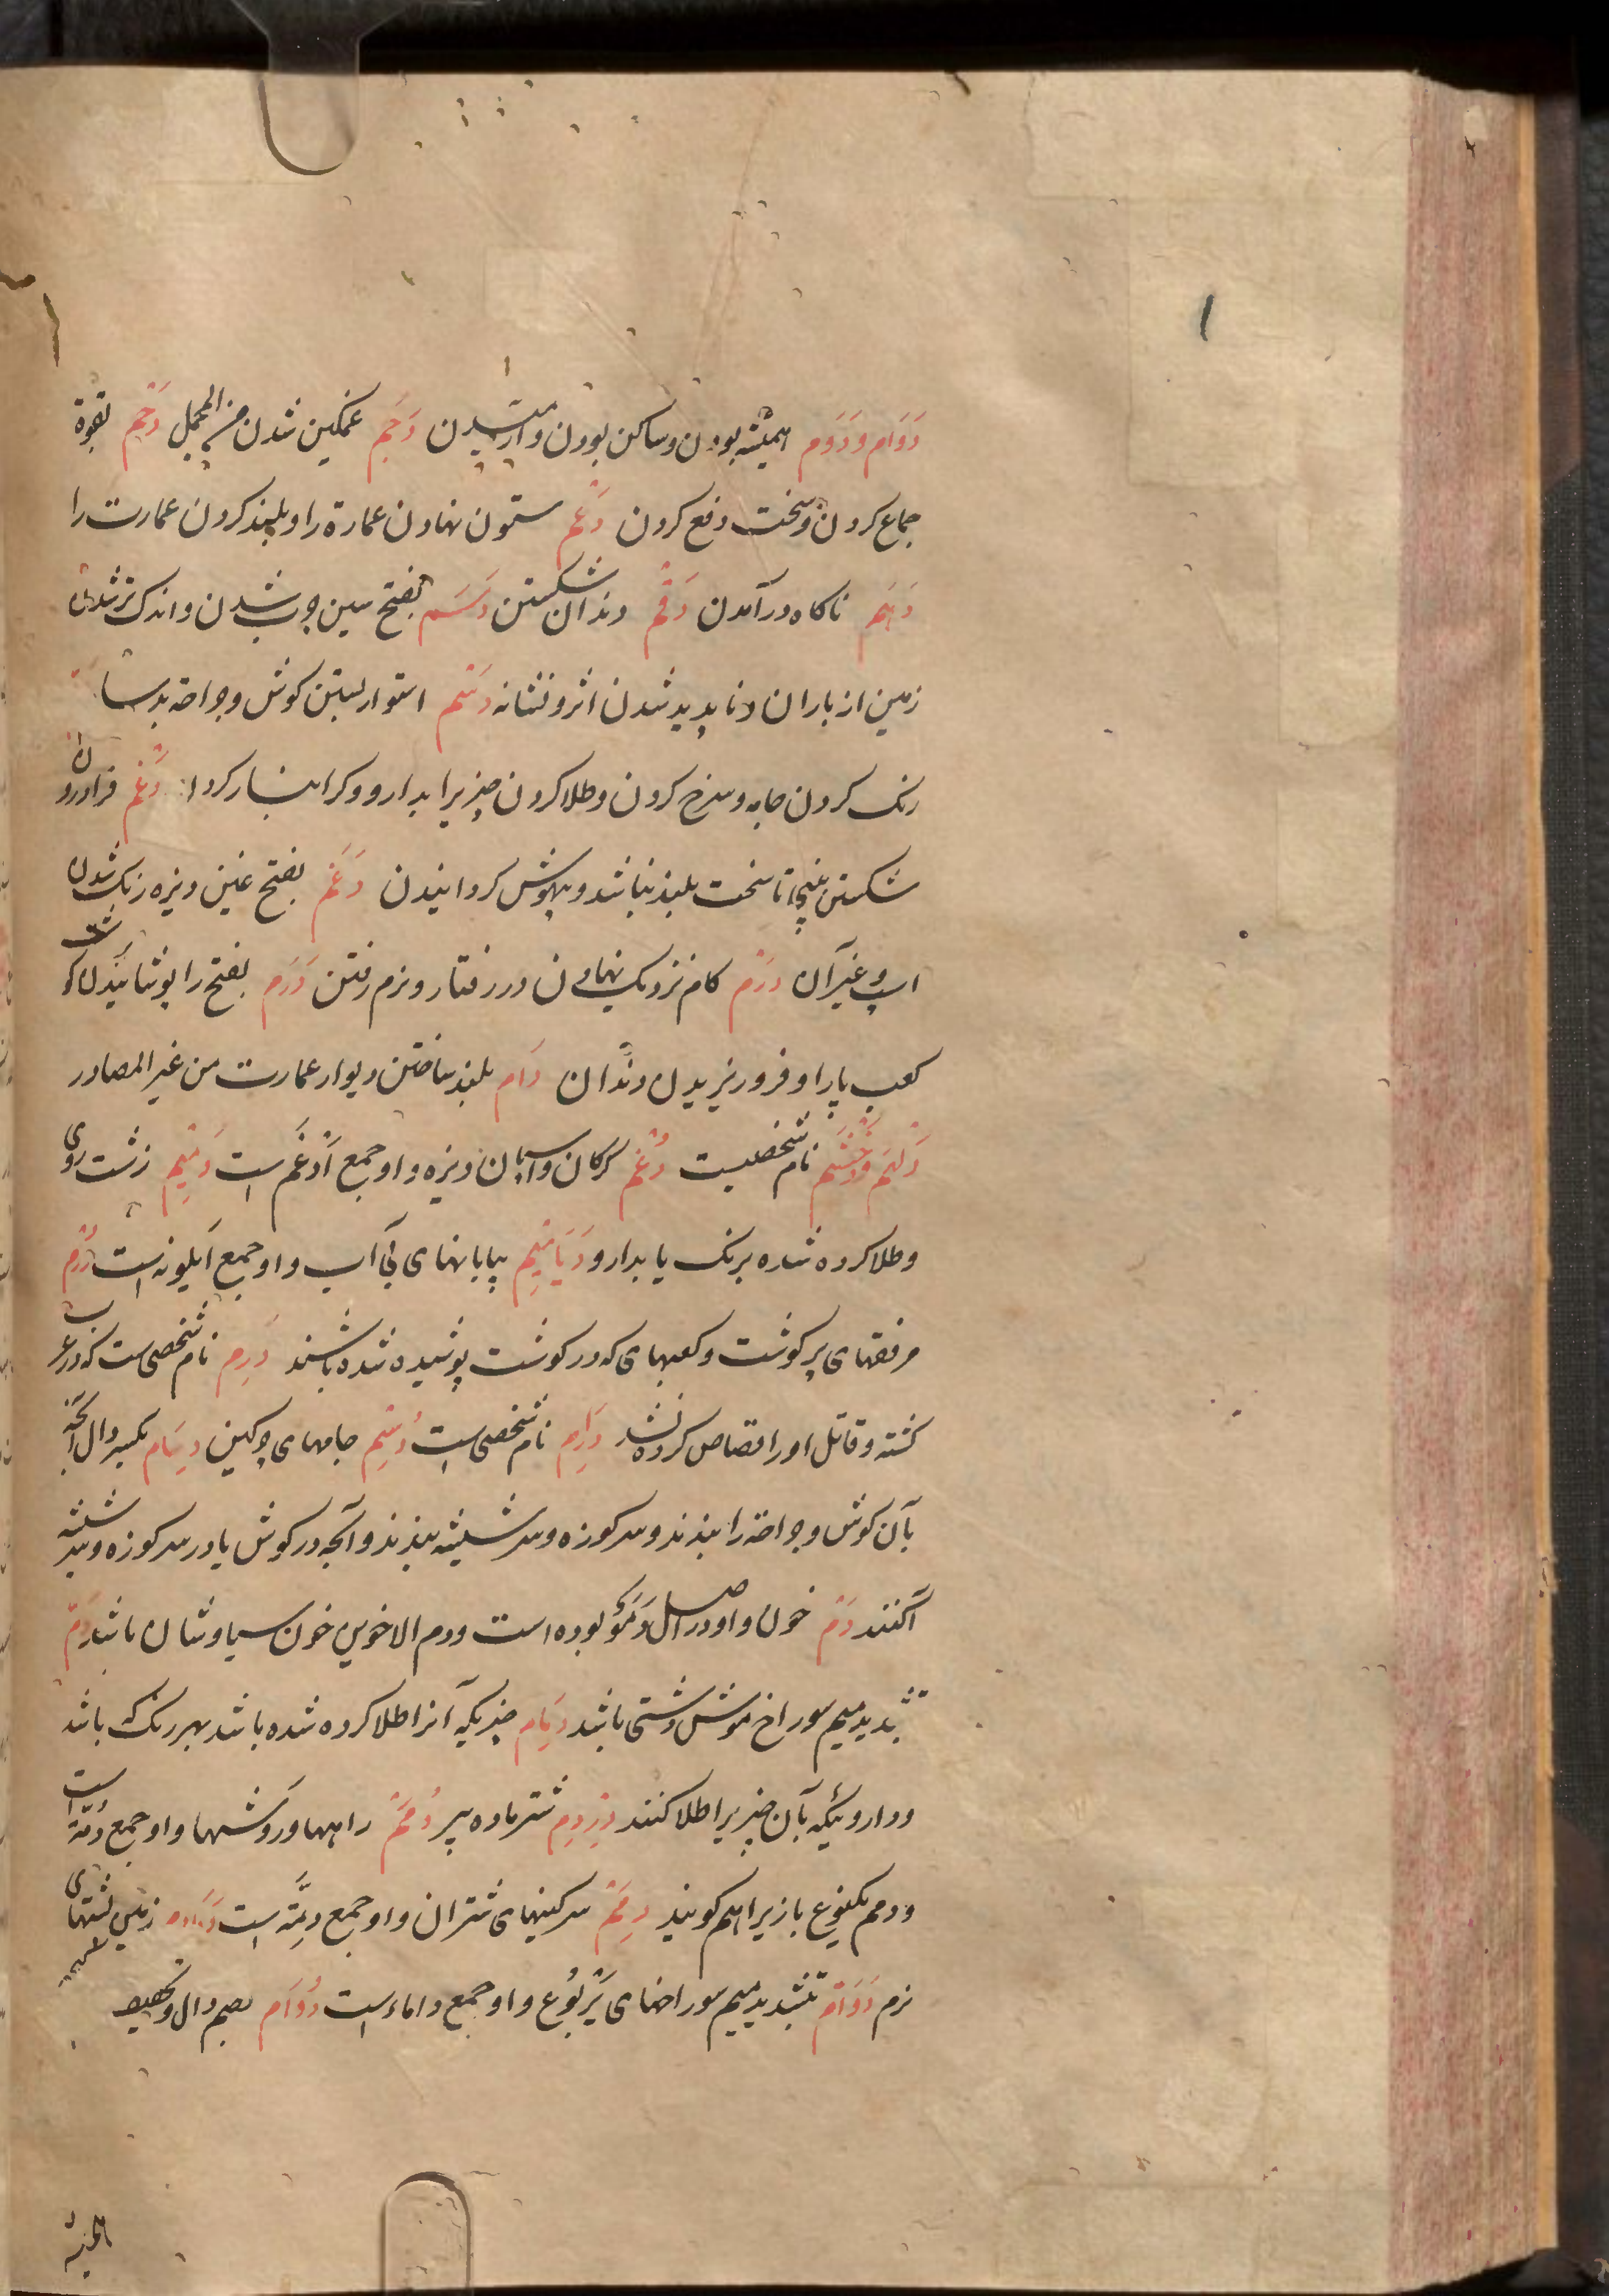 دَوَام و دَوَم همیشه بودن و ساکن بودن و آرمیدن دَجَم غمکین شدن من المجمل دَحْم بقوة
جماع کردن و سخت دفع کردن دَعْم ستون نهادن عمارة را و بلند کردن عمارت را
دَهْم ناکاه در آمدن دَقْم دندان شکستن دَسَم بفتح سین چرب شدن و اندک تر شدن
زمین از باران و ناپدید شدن اثر و نشانه دَسْم استوار بستن کوش و جراحة بدسام
رنک کردن جامه و سرخ کردن و طلا کردن چیزیرا بدارو و کرانبار کردن دَغْم
شکستن بینی تا سخت بلند نباشد و بیهوش کردانیدن دَغَم بفتح غین دیزه رنک شدن
اسپ و غیر آن دَرْم کام نزدیک نهادن در رفتار و نرم رفتن دَرَم بفتح را پوشانیدن کوشت
کعب پایرا و فرو ریزیدن دندان دَام بلند ساختن دیوار عمارت من غیر المصادر
دَلْهَم وَدَخْشَم نام شخصیست دُغْم کرکان و اسپان دیزه و او جمع اَدْغَم است دَمِیْم زشت روی
و طلا کرده شده برنک یا بدارو دَیَامِیْم بیابانهای بی آب و او جمع است دُرْم
مرفقهای پر کوشت و کعبهای که در کوشت پوشیده شده باشند دَرِم نام شخصی است که در عرب
کشته و قاتل او را قصاص کرده نشد دَارِم نام شخصی است دُسْم جامهای چرکین دِسَام بکسر دال آنچه
بآن کوش و جراحة را ببندند و سر کوزه و سر شیشه ببندند و آنچه در کوش یا در سر کوزه و سر شیشه
آکنند دَم خون و او در اصل دَمَوٌ بوده است و دم الاخوین خون سیاوشان باشد دَمّ
بتشدید میم سوراخ موش دشتی باشد دِمَام چیزیکه آنرا طلا کرده شده باشد بهر رنک که باشد
و داروئیکه بآن چیزیرا طلا کنند دِرْدِم شتر ماده پیر دُمَم راهها و روشها و او جمع دُمّة است
و دمم یکنوع بازیرا هم کویند دِمَم سرکینهای شتران و او جمع دِمّة است زمین پشتهای
نرم دَوَامّ بتشدید میم سوراخهای یَرْبُوع و او جمع داماء است دُوَام بضم دال و تخفیف